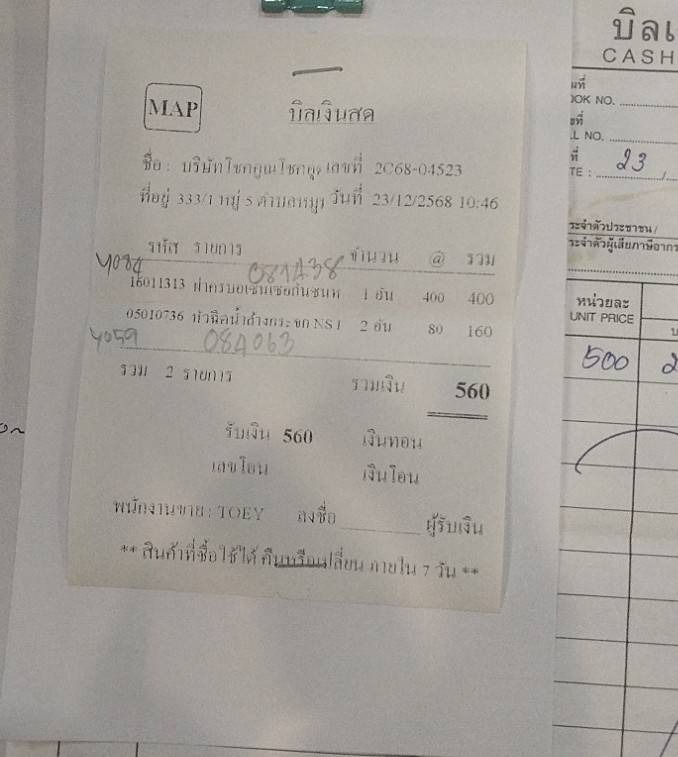 MAP
บิลเงินสด
ชื่อ : บริษัท เลขที่ 2C68-04523
ที่อยู่ 333/1 หมู่ 5 วันที่ 23/12/2568 10:46
รหัส รายการ จำนวน @ รวม
Y084 081438
16011313 1 อัน 400 400
05010736 หัวฉีดน้ำล้างกระจก NS1 2 อัน 80 160
Y059 084063
รวม 2 รายการ รวมเงิน 560
รับเงิน 560 เงินทอน
เลขโอน เงินโอน
พนักงานขาย : TOEY ลงชื่อ ผู้รับเงิน
** สินค้าที่ซื้อไปใช้ได้ คืนหรือเปลี่ยน ภายใน 7 วัน **
บิลเ
CASH
มที่
OOK NO.
ขที่
LL NO.
ที่ 23
TE : /
ระจำตัวประชาชน /
ระจำตัวผู้เสียภาษีอากร
หน่วยละ
UNIT PRICE
500 2